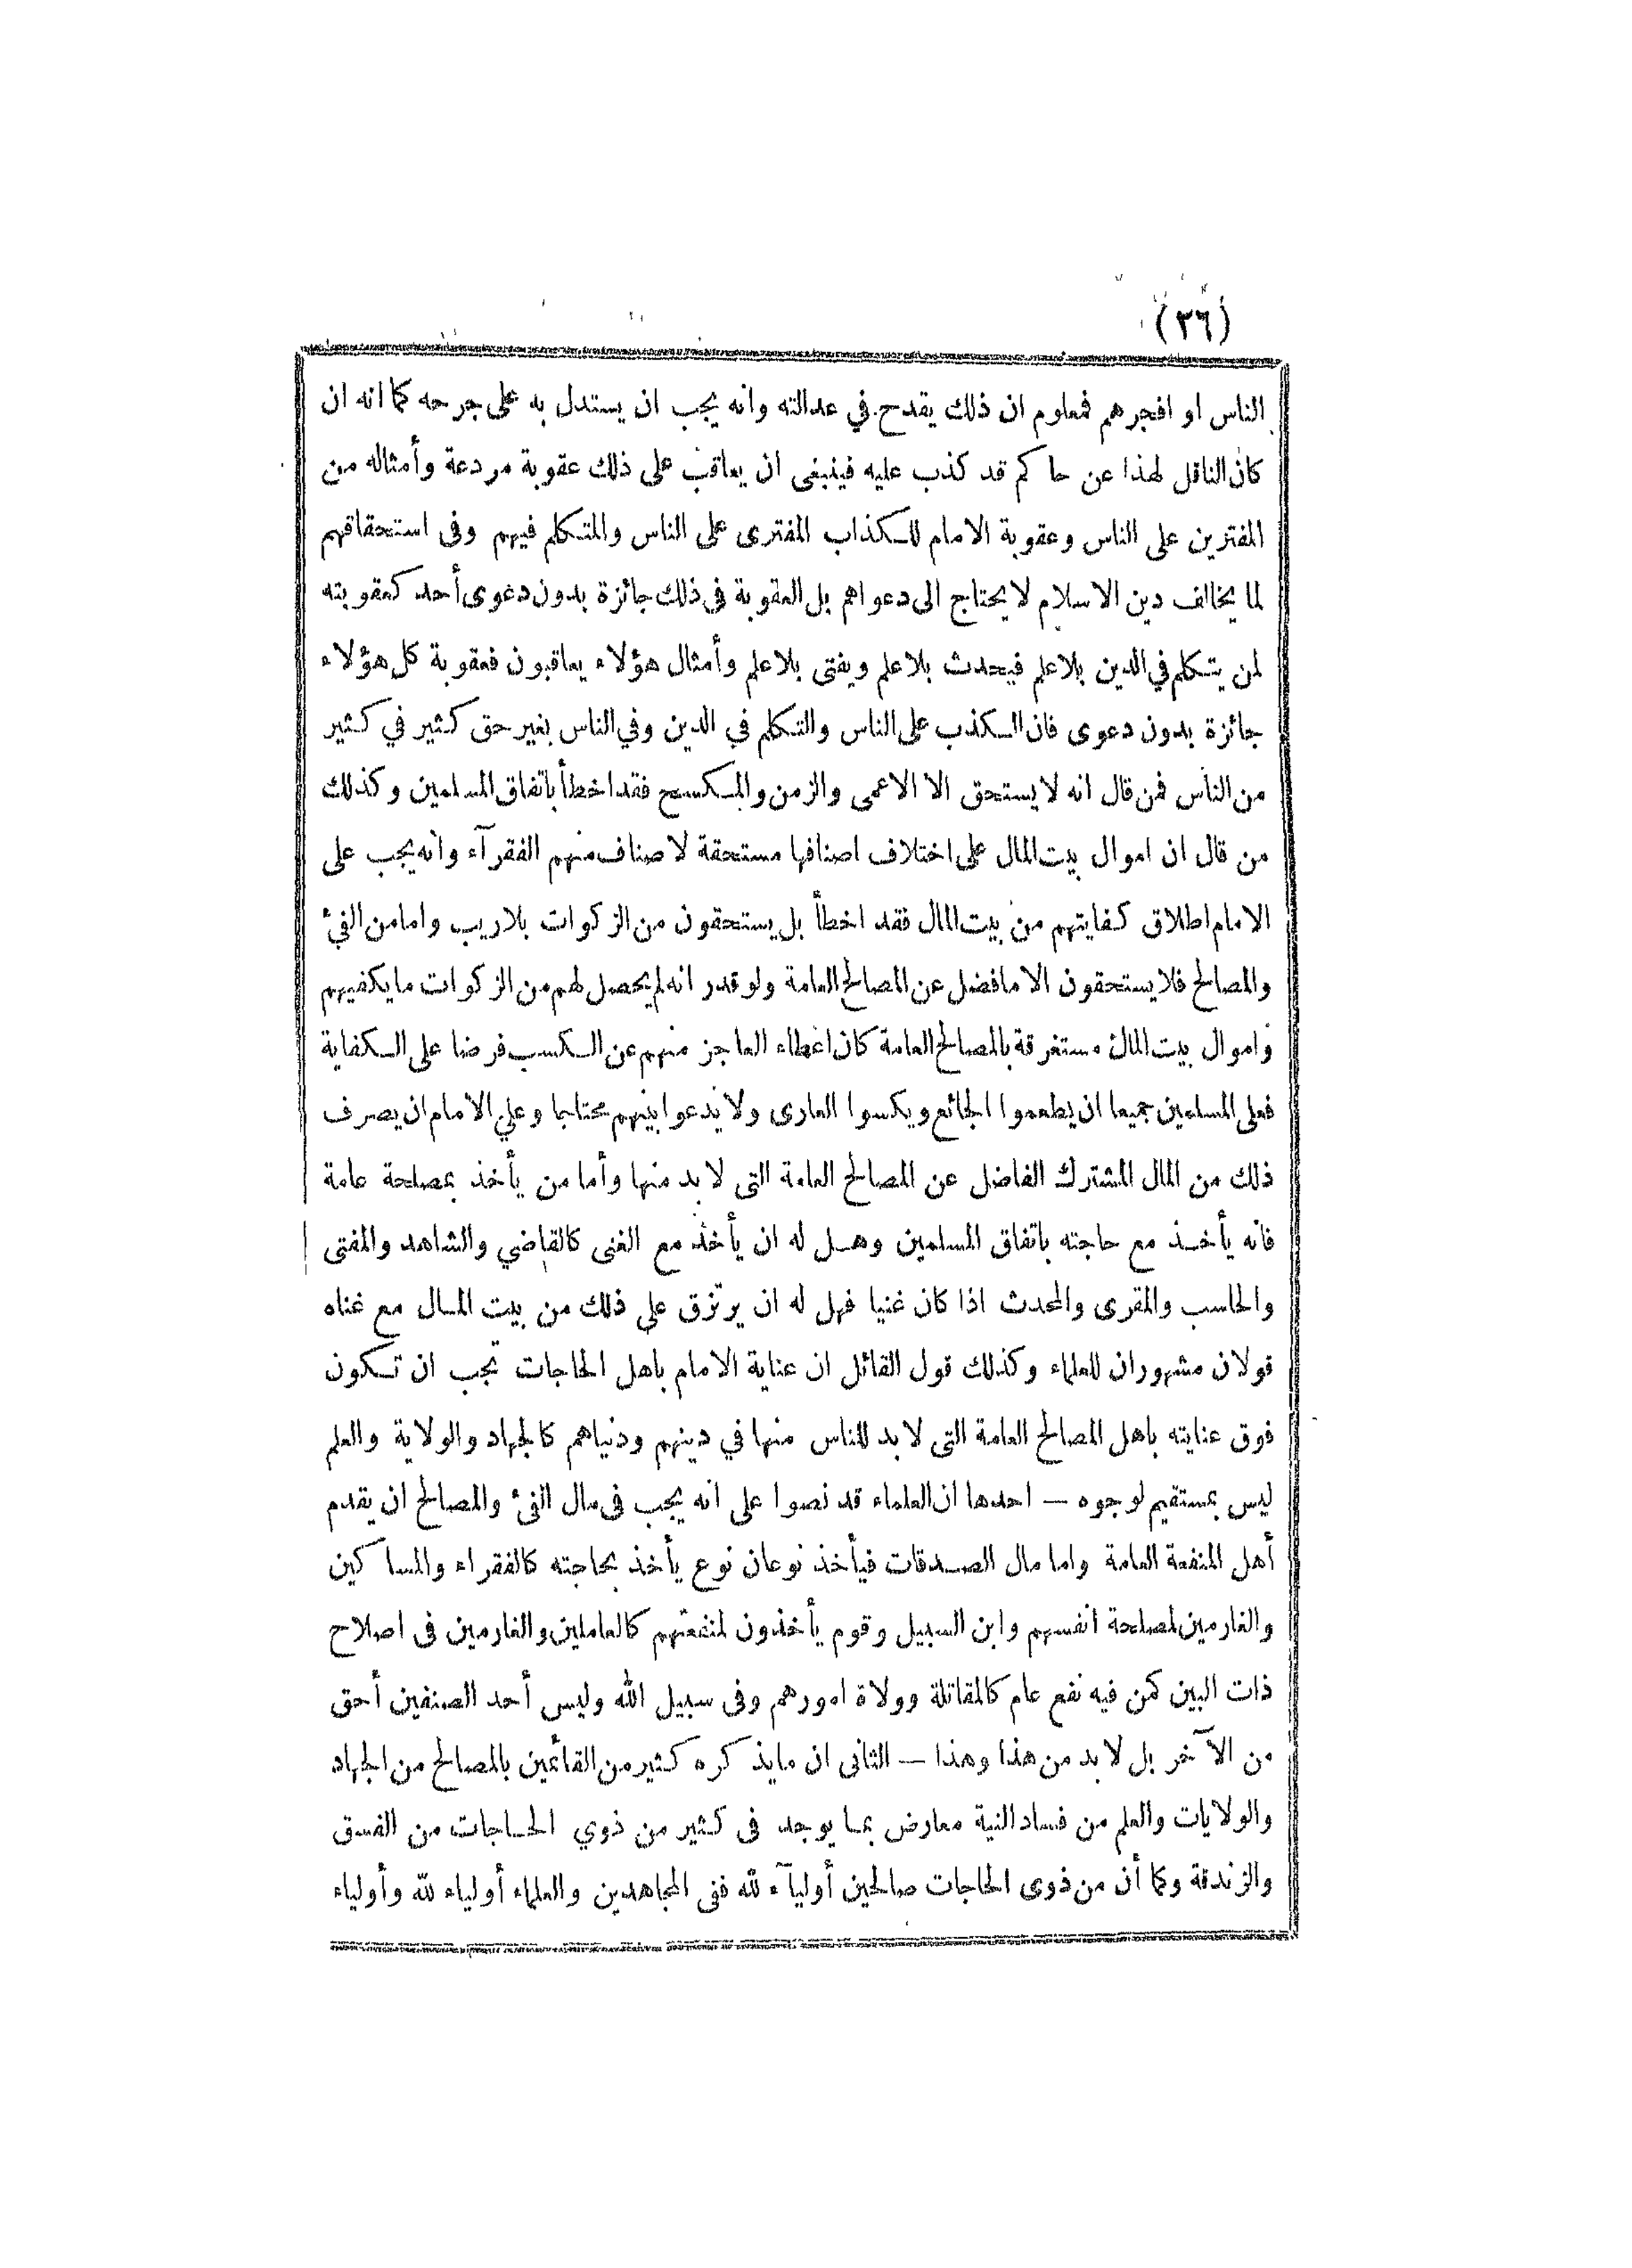 (٣٦)
الناس او افجرهم فمعلوم ان ذلك يقدح في عدالته وانه يجب ان يستدل به على جرحه كما انه ان
كان الناقل لهذا عن حاكم قد كذب عليه فينبغى ان يعاقب على ذلك عقوبة مردعة وأمثاله من
المفترين على الناس وعقوبة الامام للكذاب المفترى على الناس والمتكلم فيهم وفى استحقاقهم
لما يخالف دين الاسلام لا يحتاج الى دعواهم بل العقوبة فى ذلك جائزة بدون دعوى أحد كعقوبته
لمن يتكلم في الدين بلا علم فيحدث بلا علم ويفتى بلا علم وأمثال هؤلاء يعاقبون فعقوبة كل هؤلاء
جائزة بدون دعوى فان الكذب على الناس والتكلم في الدين وفي الناس بغير حق كثير في كثير
من الناس فمن قال انه لا يستحق الا الاعمى والزمن والمكسح فقد اخطأ باتفاق المسلمين وكذلك
من قال ان اموال بيت المال على اختلاف اصنافها مستحقة لاصناف منهم الفقرآء وانه يجب على
الامام اطلاق كفايتهم من بيت المال فقد اخطأ بل يستحقون من الزكوات بلا ريب واما من الفئ
والمصالح فلا يستحقون الا ما فضل عن المصالح العامة ولو قدر انه لم يحصل لهم من الزكوات ما يكفيهم
واموال بيت المال مستغرقة بالمصالح العامة كان اعطاء العاجز منهم عن الكسب فرضا على الكفاية
فعلى المسلمين جميعا ان يطعموا الجائع ويكسوا العارى ولا يدعوا بينهم محتاجا وعلي الامام ان يصرف
ذلك من المال المشترك الفاضل عن المصالح العامة التى لا بد منها وأما من يأخذ بمصلحة عامة
فانه يأخذ مع حاجته باتفاق المسلمين وهل له ان يأخذ مع الغنى كالقاضي والشاهد والمفتى
والحاسب والمقرى والمحدث اذا كان غنيا فهل له ان يرتزق على ذلك من بيت المال مع غناه
قولان مشهوران للعلماء وكذلك قول القائل ان عناية الامام باهل الحاجات تجب ان تكون
فوق عنايته باهل المصالح العامة التى لا بد للناس منها في دينهم ودنياهم كالجهاد والولاية والعلم
ليس بمستقيم لوجوه — احدها ان العلماء قد نصوا على انه يجب فى مال الفئ والمصالح ان يقدم
أهل المنفعة العامة واما مال الصدقات فيأخذ نوعان نوع يأخذ بحاجته كالفقراء والمساكين
والغارمين لمصلحة انفسهم وابن السبيل وقوم يأخذون لمنفعتهم كالعاملين والغارمين فى اصلاح
ذات البين كمن فيه نفع عام كالمقاتلة وولاة امورهم وفى سبيل الله وليس أحد الصنفين أحق
من الآخر بل لا بد من هذا وهذا — الثانى ان ما يذكره كثير من القائمين بالمصالح من الجهاد
والولايات والعلم من فساد النية معارض بما يوجد فى كثير من ذوي الحاجات من الفسق
والزندقة وكما أن من ذوى الحاجات صالحين أوليآء لله ففى المجاهدين والعلماء أولياء لله وأولياء